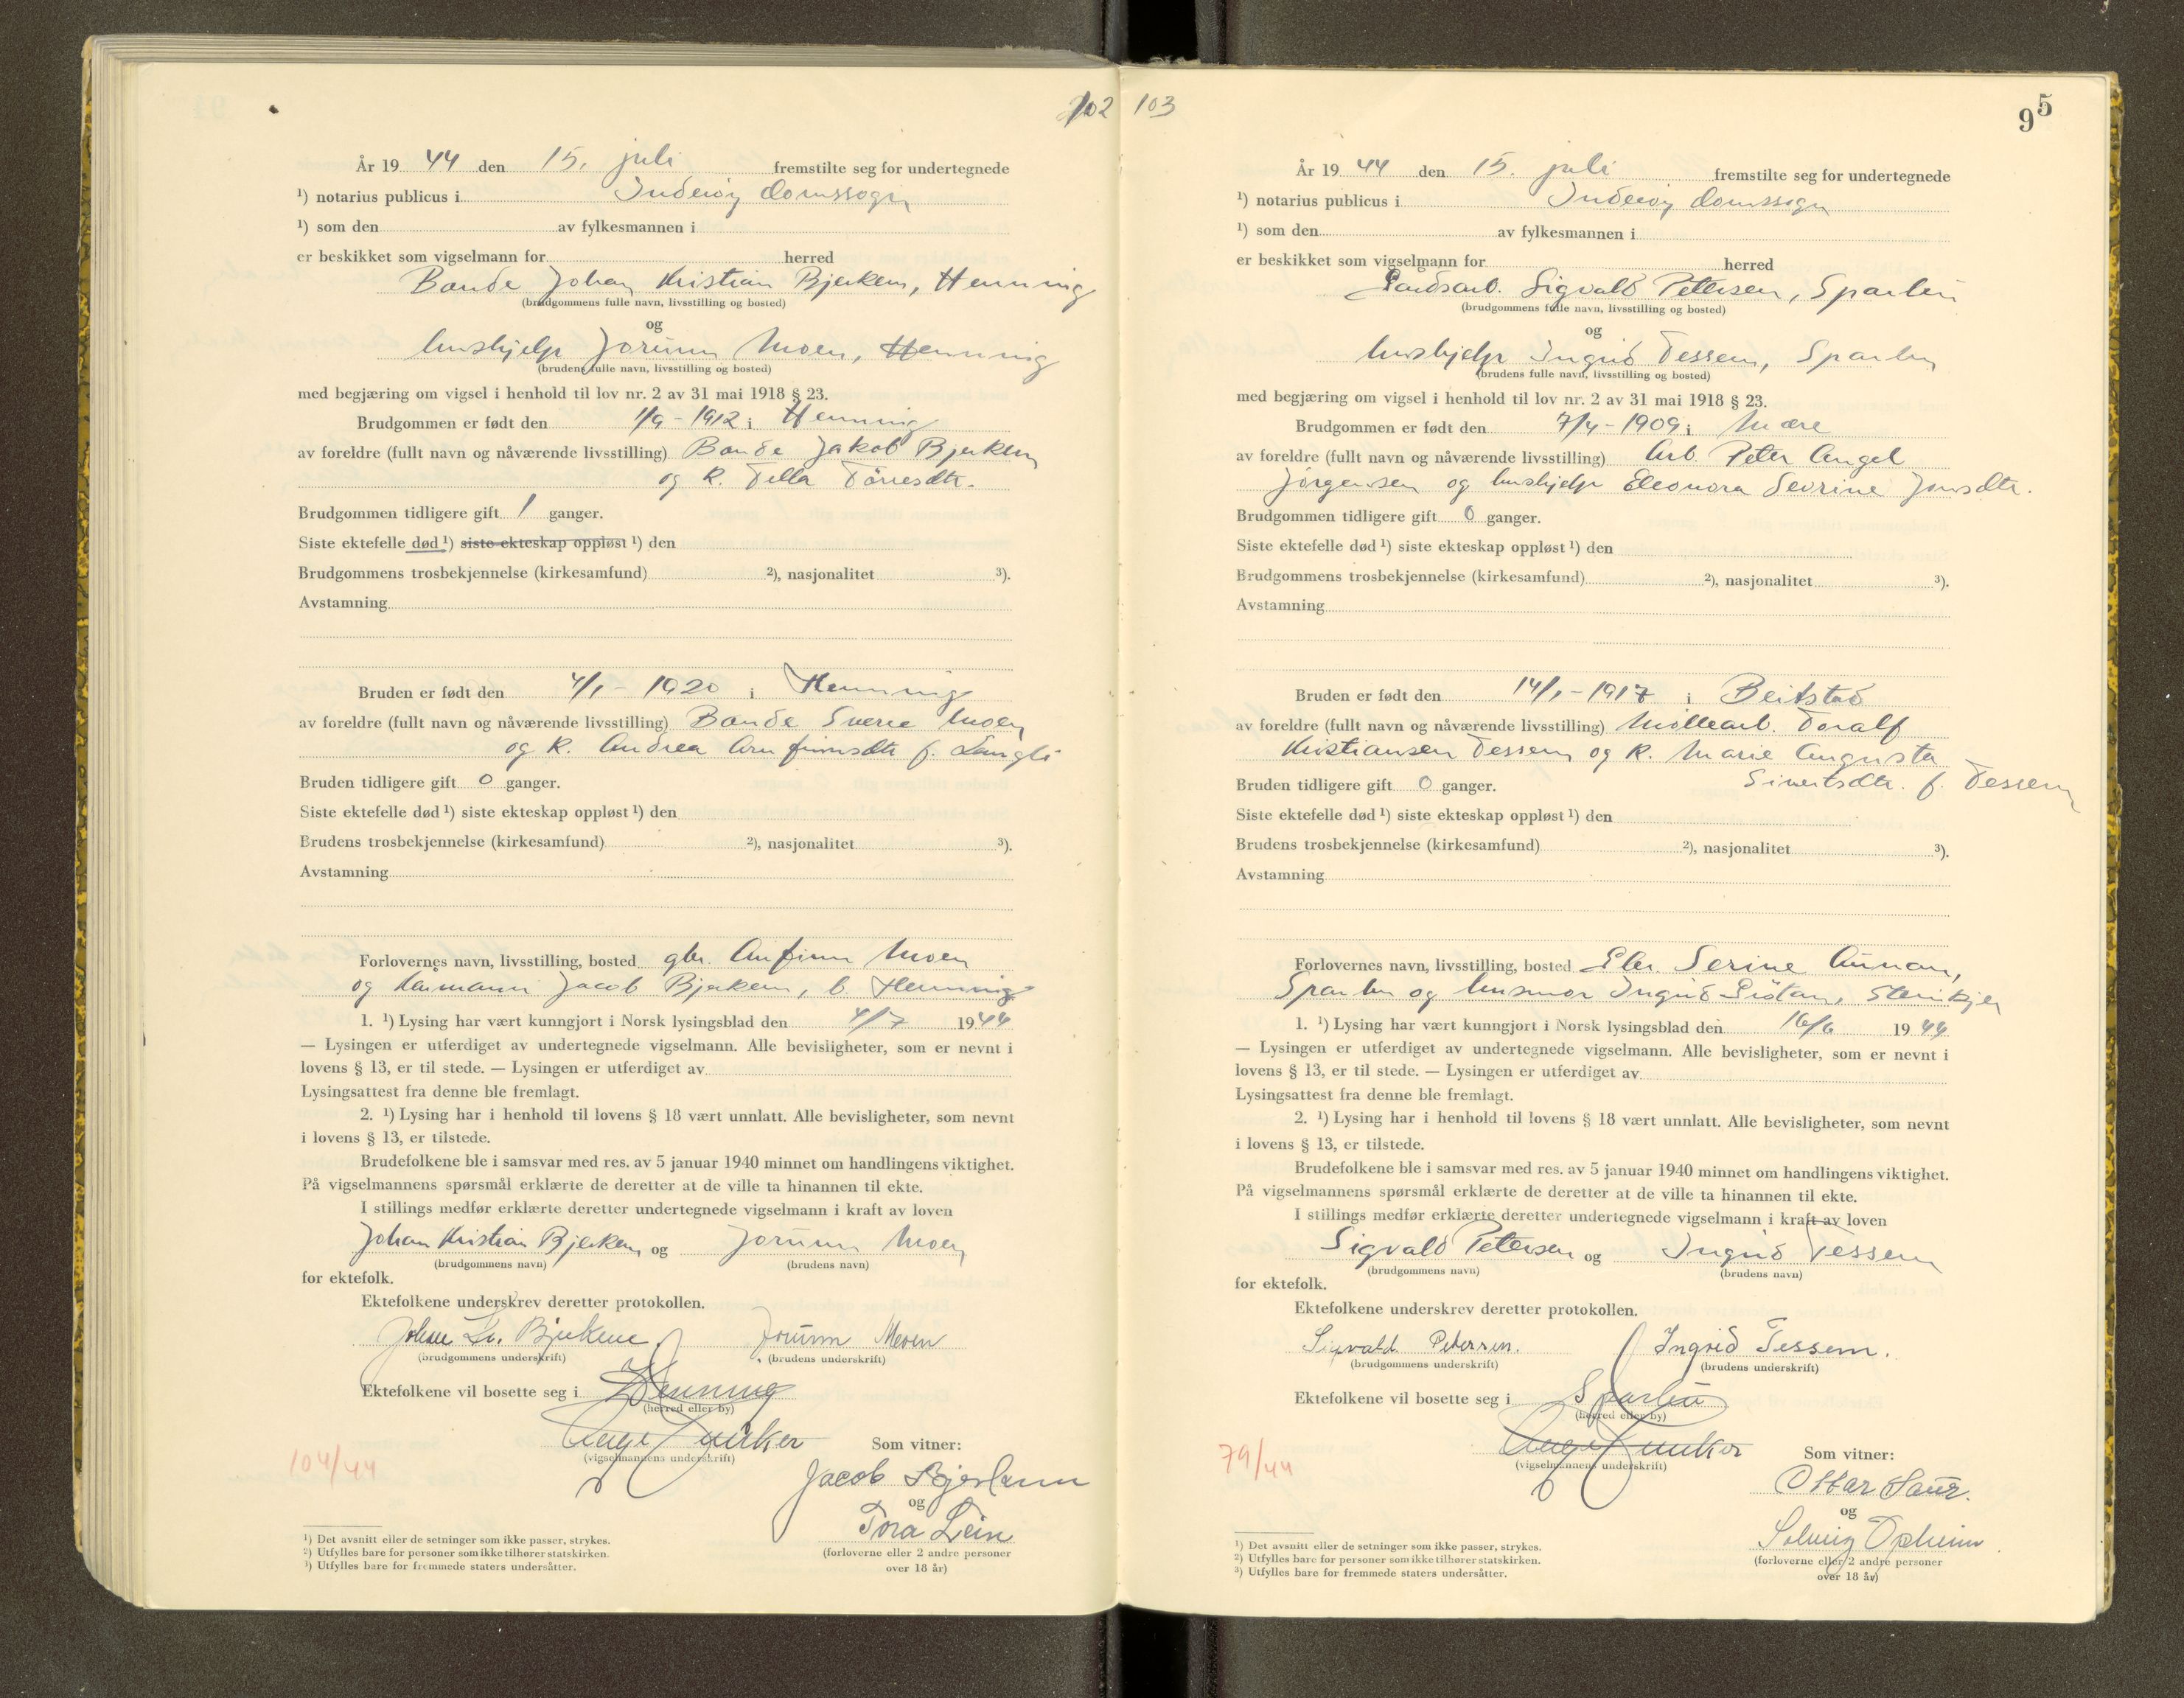 102
År 19 44 den 15. juli fremstilte seg for undertegnede
¹) notarius publicus i Inderöy domssogn
¹) som den av fylkesmannen i
er beskikket som vigselmann for herred
Bonde Johan Kristian Bjerkem, Henning
(brudgommens fulle navn, livsstilling og bosted)
og
hushjelp Jorunn Moen, Henning
(brudens fulle navn, livsstilling og bosted)
med begjæring om vigsel i henhold til lov nr. 2 av 31 mai 1918 § 23.
Brudgommen er født den 1/9 - 1912 i Henning
av foreldre (fullt navn og nåværende livsstilling) Bonde Jakob Bjerkem
og k. Tella Törresdtr.
Brudgommen tidligere gift 1 ganger.
Siste ektefelle død ¹) siste ekteskap oppløst ¹) den
Brudgommens trosbekjennelse (kirkesamfund) ²), nasjonalitet ³).
Avstamning
Bruden er født den 4/1 - 1920 i Henning
av foreldre (fullt navn og nåværende livsstilling) Bonde Sverre Moen
og k. Andrea Arnfinnsdtr f. Langli
Bruden tidligere gift 0 ganger.
Siste ektefelle død ¹) siste ekteskap oppløst ¹) den
Brudens trosbekjennelse (kirkesamfund) ²), nasjonalitet ³).
Avstamning
Forlovernes navn, livsstilling, bosted gbr. Arnfinn Moen
og Jacob Bjerkem, b. Henning
1. ¹) Lysing har vært kunngjort i Norsk lysingsblad den 4/7 1944
— Lysingen er utferdiget av undertegnede vigselmann. Alle bevisligheter, som er nevnt i
lovens § 13, er til stede. — Lysingen er utferdiget av
Lysingsattest fra denne ble fremlagt.
2. ¹) Lysing har i henhold til lovens § 18 vært unnlatt. Alle bevisligheter, som nevnt
i lovens § 13, er tilstede.
Brudefolkene ble i samsvar med res. av 5 januar 1940 minnet om handlingens viktighet.
På vigselmannens spørsmål erklærte de deretter at de ville ta hinannen til ekte.
I stillings medfør erklærte deretter undertegnede vigselmann i kraft av loven
Johan Kristian Bjerkem og Jorunn Moen
(brudgommens navn) (brudens navn)
for ektefolk.
Ektefolkene underskrev deretter protokollen.
Johan Kr. Bjerkem Jorunn Moen
(brudgommens underskrift) (brudens underskrift)
Ektefolkene vil bosette seg i Henning
(herred eller by)
Aage Junker Som vitner:
(vigselmannens underskrift)
104/44
Jacob Bjerkem
og
Tora Lein
(forloverne eller 2 andre personer
over 18 år)
¹) Det avsnitt eller de setninger som ikke passer, strykes.
²) Utfylles bare for personer som ikke tilhører statskirken.
³) Utfylles bare for fremmede staters undersåtter.
103
95
År 19 44 den 15. juli fremstilte seg for undertegnede
¹) notarius publicus i Inderöy domssogn
¹) som den av fylkesmannen i
er beskikket som vigselmann for herred
Gardsarb. Sigvald Petersen, Sparbu
(brudgommens fulle navn, livsstilling og bosted)
og
hushjelp Ingrid Tessem, Sparbu
(brudens fulle navn, livsstilling og bosted)
med begjæring om vigsel i henhold til lov nr. 2 av 31 mai 1918 § 23.
Brudgommen er født den 7/4 - 1909 i Mære
av foreldre (fullt navn og nåværende livsstilling) Arb. Peter Angel
Jörgensen og hushjelp Eleonora Sevrine Jonsdtr.
Brudgommen tidligere gift 0 ganger.
Siste ektefelle død ¹) siste ekteskap oppløst ¹) den
Brudgommens trosbekjennelse (kirkesamfund) ²), nasjonalitet ³).
Avstamning
Bruden er født den 14/1 - 1917 i Beitstad
av foreldre (fullt navn og nåværende livsstilling) Möllearb. Toralf
Kristiansen Tessem og k. Marie Augusta
Bruden tidligere gift 0 ganger. Sivertsdtr. f. Tessem
Siste ektefelle død ¹) siste ekteskap oppløst ¹) den
Brudens trosbekjennelse (kirkesamfund) ²), nasjonalitet ³).
Avstamning
Forlovernes navn, livsstilling, bosted Serine Aunan,
Sparbu og husmor Ingrid Steinkjer
1. ¹) Lysing har vært kunngjort i Norsk lysingsblad den 16/6 1944
— Lysingen er utferdiget av undertegnede vigselmann. Alle bevisligheter, som er nevnt i
lovens § 13, er til stede. — Lysingen er utferdiget av
Lysingsattest fra denne ble fremlagt.
2. ¹) Lysing har i henhold til lovens § 18 vært unnlatt. Alle bevisligheter, som nevnt
i lovens § 13, er tilstede.
Brudefolkene ble i samsvar med res. av 5 januar 1940 minnet om handlingens viktighet.
På vigselmannens spørsmål erklærte de deretter at de ville ta hinannen til ekte.
I stillings medfør erklærte deretter undertegnede vigselmann i kraft av loven
Sigvald Petersen og Ingrid Tessem
(brudgommens navn) (brudens navn)
for ektefolk.
Ektefolkene underskrev deretter protokollen.
Sigvald Petersen. Ingrid Tessem.
(brudgommens underskrift) (brudens underskrift)
Ektefolkene vil bosette seg i Sparbu
(herred eller by)
Aage Junker Som vitner:
(vigselmannens underskrift)
79/44
Ottar Saur.
og
Solveig Opheim
(forloverne eller 2 andre personer
over 18 år)
¹) Det avsnitt eller de setninger som ikke passer, strykes.
²) Utfylles bare for personer som ikke tilhører statskirken.
³) Utfylles bare for fremmede staters undersåtter.